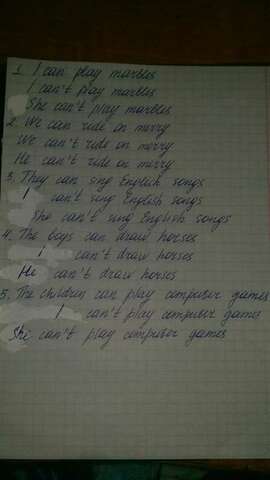 1. I can play marbles
I can't play marbles
She can't play marbles
2. We can ride on merry
We can't ride on merry
He can't ride on merry
3. They can sing English songs
I can't sing English songs
She can't sing English songs
4. The boys can draw horses
I can't draw horses
He can't draw horses
5. The children can play computer games
I can't play computer games
She can't play computer games